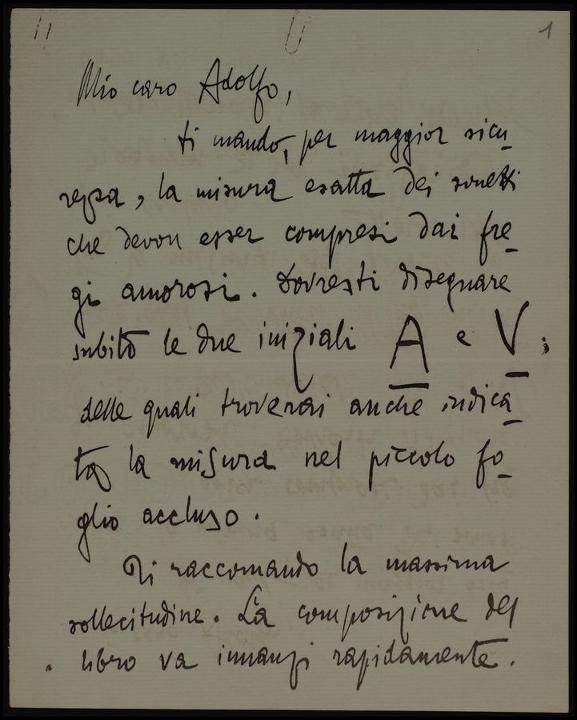 11 1
Mio caro Adolfo,
ti mando, per maggior sicu-
rezza, la misura esatta dei sonetti
che devon esser compresi dai fre-
gi amorosi. Dovresti disegnare
subito le due iniziali A e V;
delle quali troverai anche indica-
ta la misura nel piccolo fo-
glio accluso.
Ti raccomando la massima
sollecitudine. La composizione del
libro va innanzi rapidamente.